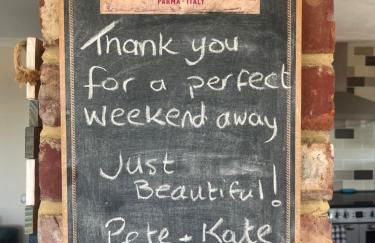 PARMA · ITALY
Thank you
for a perfect
weekend away
Just
Beautiful!
Pete + Kate